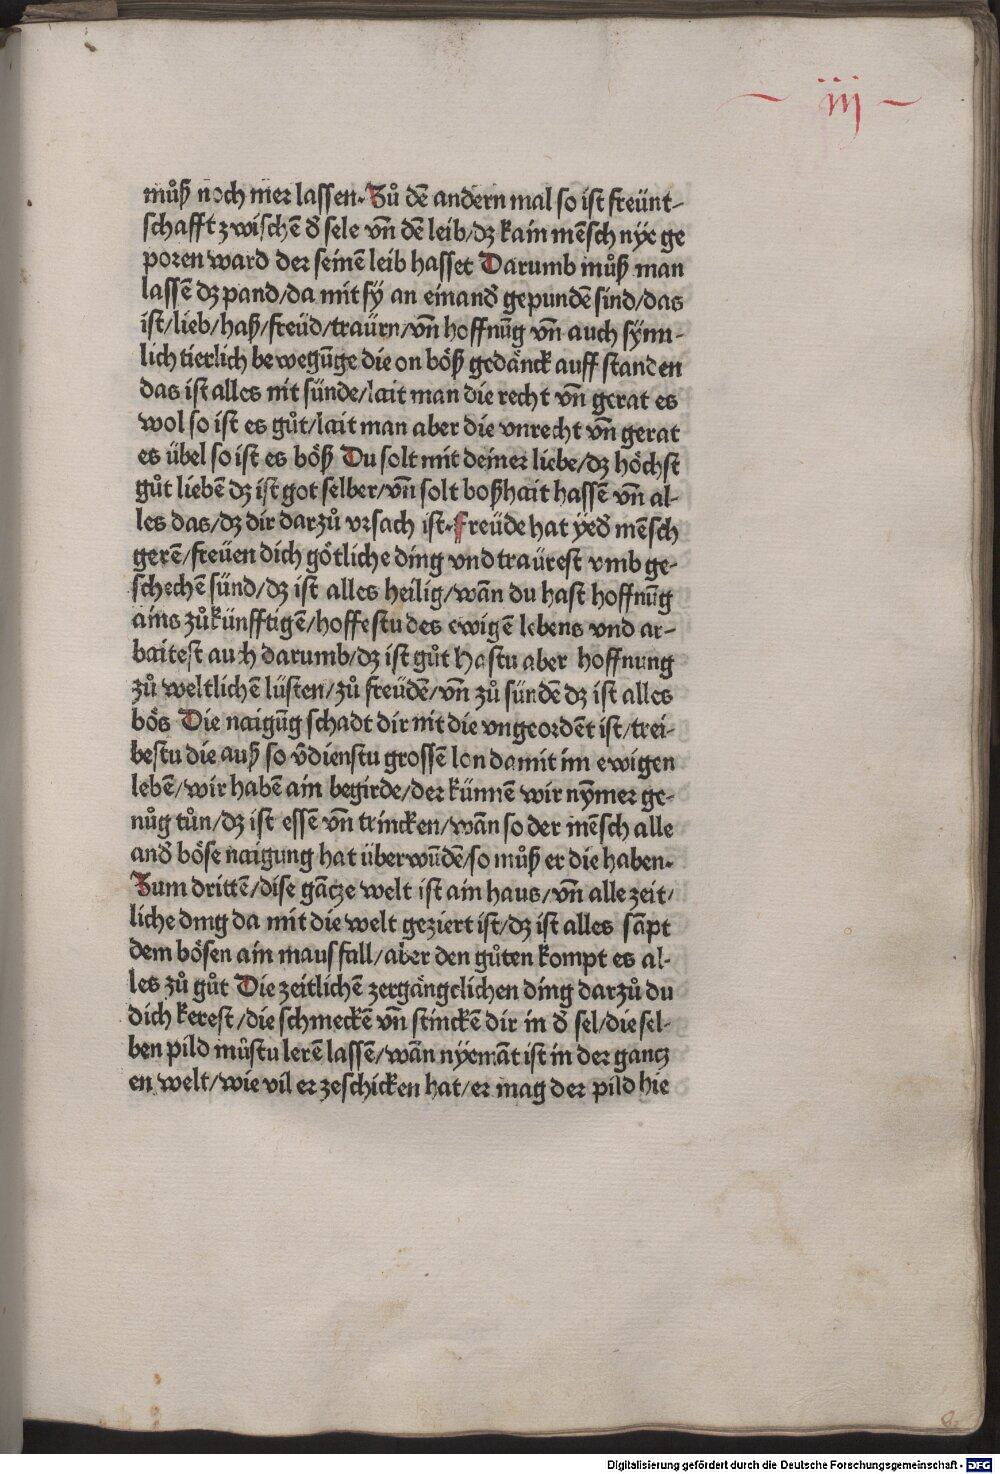 ~ iij ~
můß noch mer lassen. Zů dē andern mal so ist freünt-
schafft zwischē d̄ sele vn̄ dē leib/dz kain mēsch nye ge
poren ward der seinē leib hasset Darumb můß man
lassē dz pand/da mit sÿ an einand̄ gepundē sind/das
ist/lieb/haß/freüd/traürn/vn̄ hoffnūg vn̄ auch sÿnn-
lich tierlich bewegūge die on böß gedänck auff standen
das ist alles nit sünde/lait man die recht vn̄ gerat es
wol so ist es gůt/lait man aber die vnrecht vn̄ gerat
es übel so ist es böß Du solt mit deiner liebe/dz höchst
gůt liebē dz ist got selber/vn̄ solt boßhait hassē vn̄ al-
les das/dz dir darzů vrsach ist. Freüde hat yed̄ mēsch
gerē/freüen dich götliche ding vnd traürest vmb ge-
schechē sünd/dz ist alles heilig/wān du hast hoffnūg
ains zůkünfftigē/hoffestu des ewigē lebens vnd ar-
baitest auch darumb/dz ist gůt Hastu aber hoffnung
zů weltlichē lüsten/zů freüdē/vn̄ zů sündē dz ist alles
bös Die naigūg schadt dir nit die vngeordēt ist/trei-
bestu die auß so v̄dienstu grossē lon damit im ewigen
lebē/wir habē ain begirde/der künnē wir nȳmer ge-
nůg tůn/dz ist essē vn̄ trincken/wān so der mēsch alle
and̄ böse naigung hat überwūdē/so můß er die haben.
Zum drittē/dise gācze welt ist ain haus/vn̄ alle zeit/
liche ding da mit die welt geziert ist/dz ist alles sāpt
dem bösen ain maus fall/aber den gůten kompt es al-
les zů gůt Die zeitlichē zergängclichen ding darzů du
dich kerest/die schmeckē vn̄ stinckē dir in d̄ sel/die sel-
ben pild můstu lerē lassē/wān nyemāt ist in der gancz
en welt/wie vil er zeschicken hat/er mag der pild hie
Digitalisierung gefördert durch die Deutsche Forschungsgemeinschaft - DFG